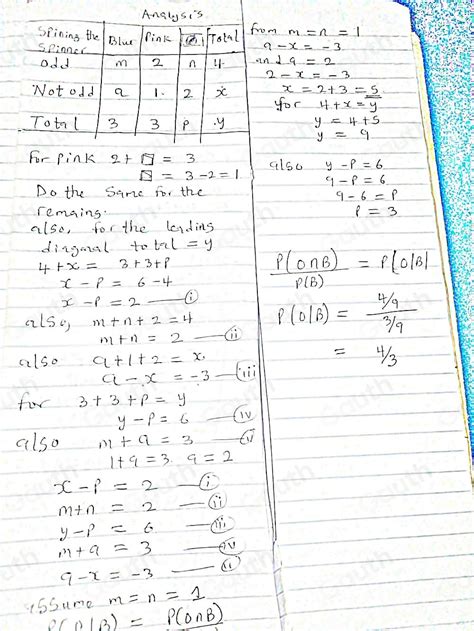 Analysis
Spining the Spinner | Blue | Pink | | Total
odd | m | 2 | n | 4
Not odd | a | 1 | 2 | x
Total | 3 | 3 | p | y
For Pink 2 + □ = 3
□ = 3 - 2 = 1
Do the Same for the
remaing.
also, for the leading
diagonal total = y
4 + x = 3+3+p
x - p = 6 - 4
x - p = 2 — (i)
also, m + n + 2 = 4
m + n = 2 — (ii)
also a + 1 + 2 = x
a - x = -3 — (iii)
for 3 + 3 + p = y
y - p = 6 — (iv)
also m + a = 3 — (v)
1 + a = 3 a = 2
x - p = 2 — (i)
m + n = 2 — (ii)
y - p = 6 — (iii)
m + a = 3 — (iv)
a - x = -3 — (v)
assume m = n = 1
P(O|B) = P(O∩B)
from m = n = 1
a - x = -3
and a = 2
2 - x = -3
x = 2+3 = 5
for 4 + x = y
y = 4 + 5
y = 9
also y - p = 6
9 - p = 6
9 - 6 = p
p = 3
P(O∩B)/P(B) = P(O|B)
P(O|B) = 4/9 / 3/9
= 4/3